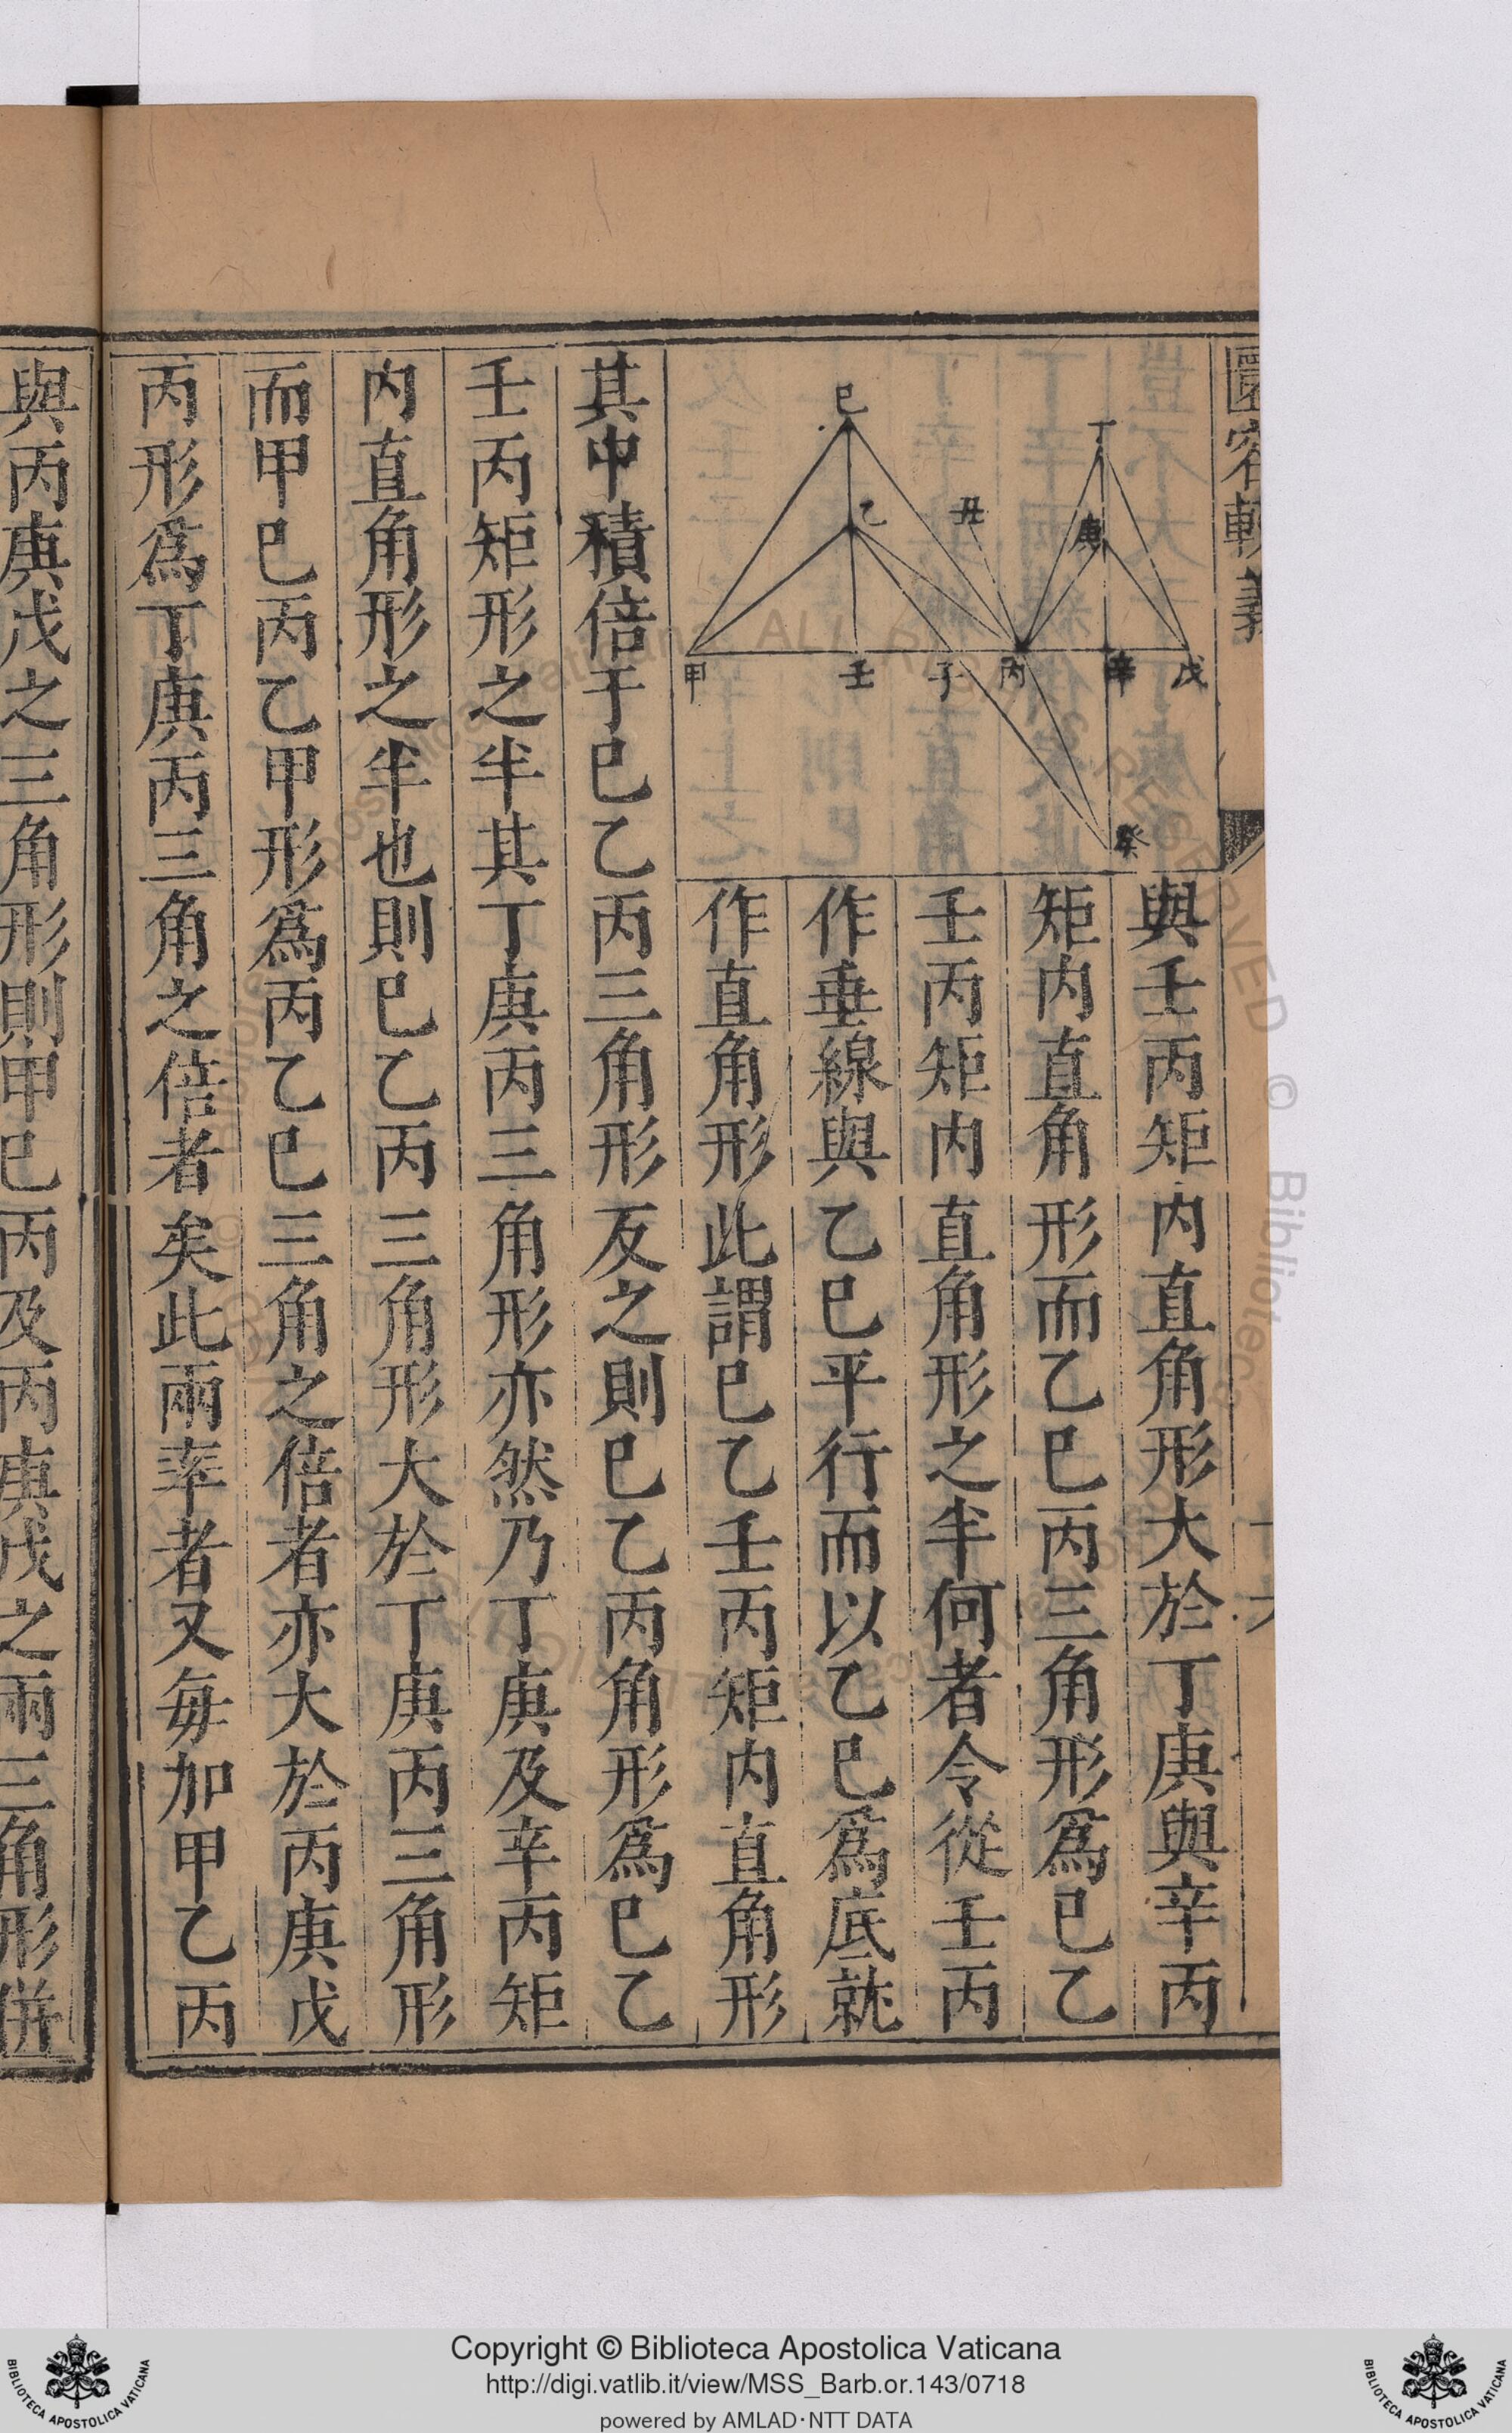 圜容較義
巳
丁
乙
丑
庚
甲
壬
子
丙
辛
戊
癸
與壬丙矩内直角形大於丁庚與辛丙
矩内直角形而乙巳丙三角形為巳乙
壬丙矩内直角形之半何者令從壬丙
作垂線與乙巳平行而以乙巳為底就
作直角形此謂巳乙壬丙矩内直角形
其中積倍于巳乙丙三角形反之則巳乙丙角形為巳乙
壬丙矩形之半其丁庚丙三角形亦然乃丁庚及辛丙矩
内直角形之半也則巳乙丙三角形大於丁庚丙三角形
而甲巳丙乙甲形為丙乙巳三角之倍者亦大於丙庚戊
丙形為丁庚丙三角之倍者矣此兩率者又每加甲乙丙
與丙庚戊之三角形則甲巳丙及丙庚戊之兩三角形併
Copyright © Biblioteca Apostolica Vaticana
http://digi.vatlib.it/view/MSS_Barb.or.143/0718
powered by AMLAD·NTT DATA
BIBLIOTECA APOSTOLICA VATICANA
BIBLIOTECA APOSTOLICA VATICANA